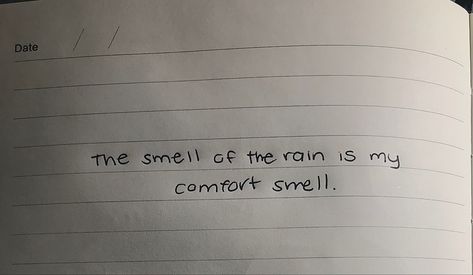 Date / /
The smell of the rain is my
comfort smell.